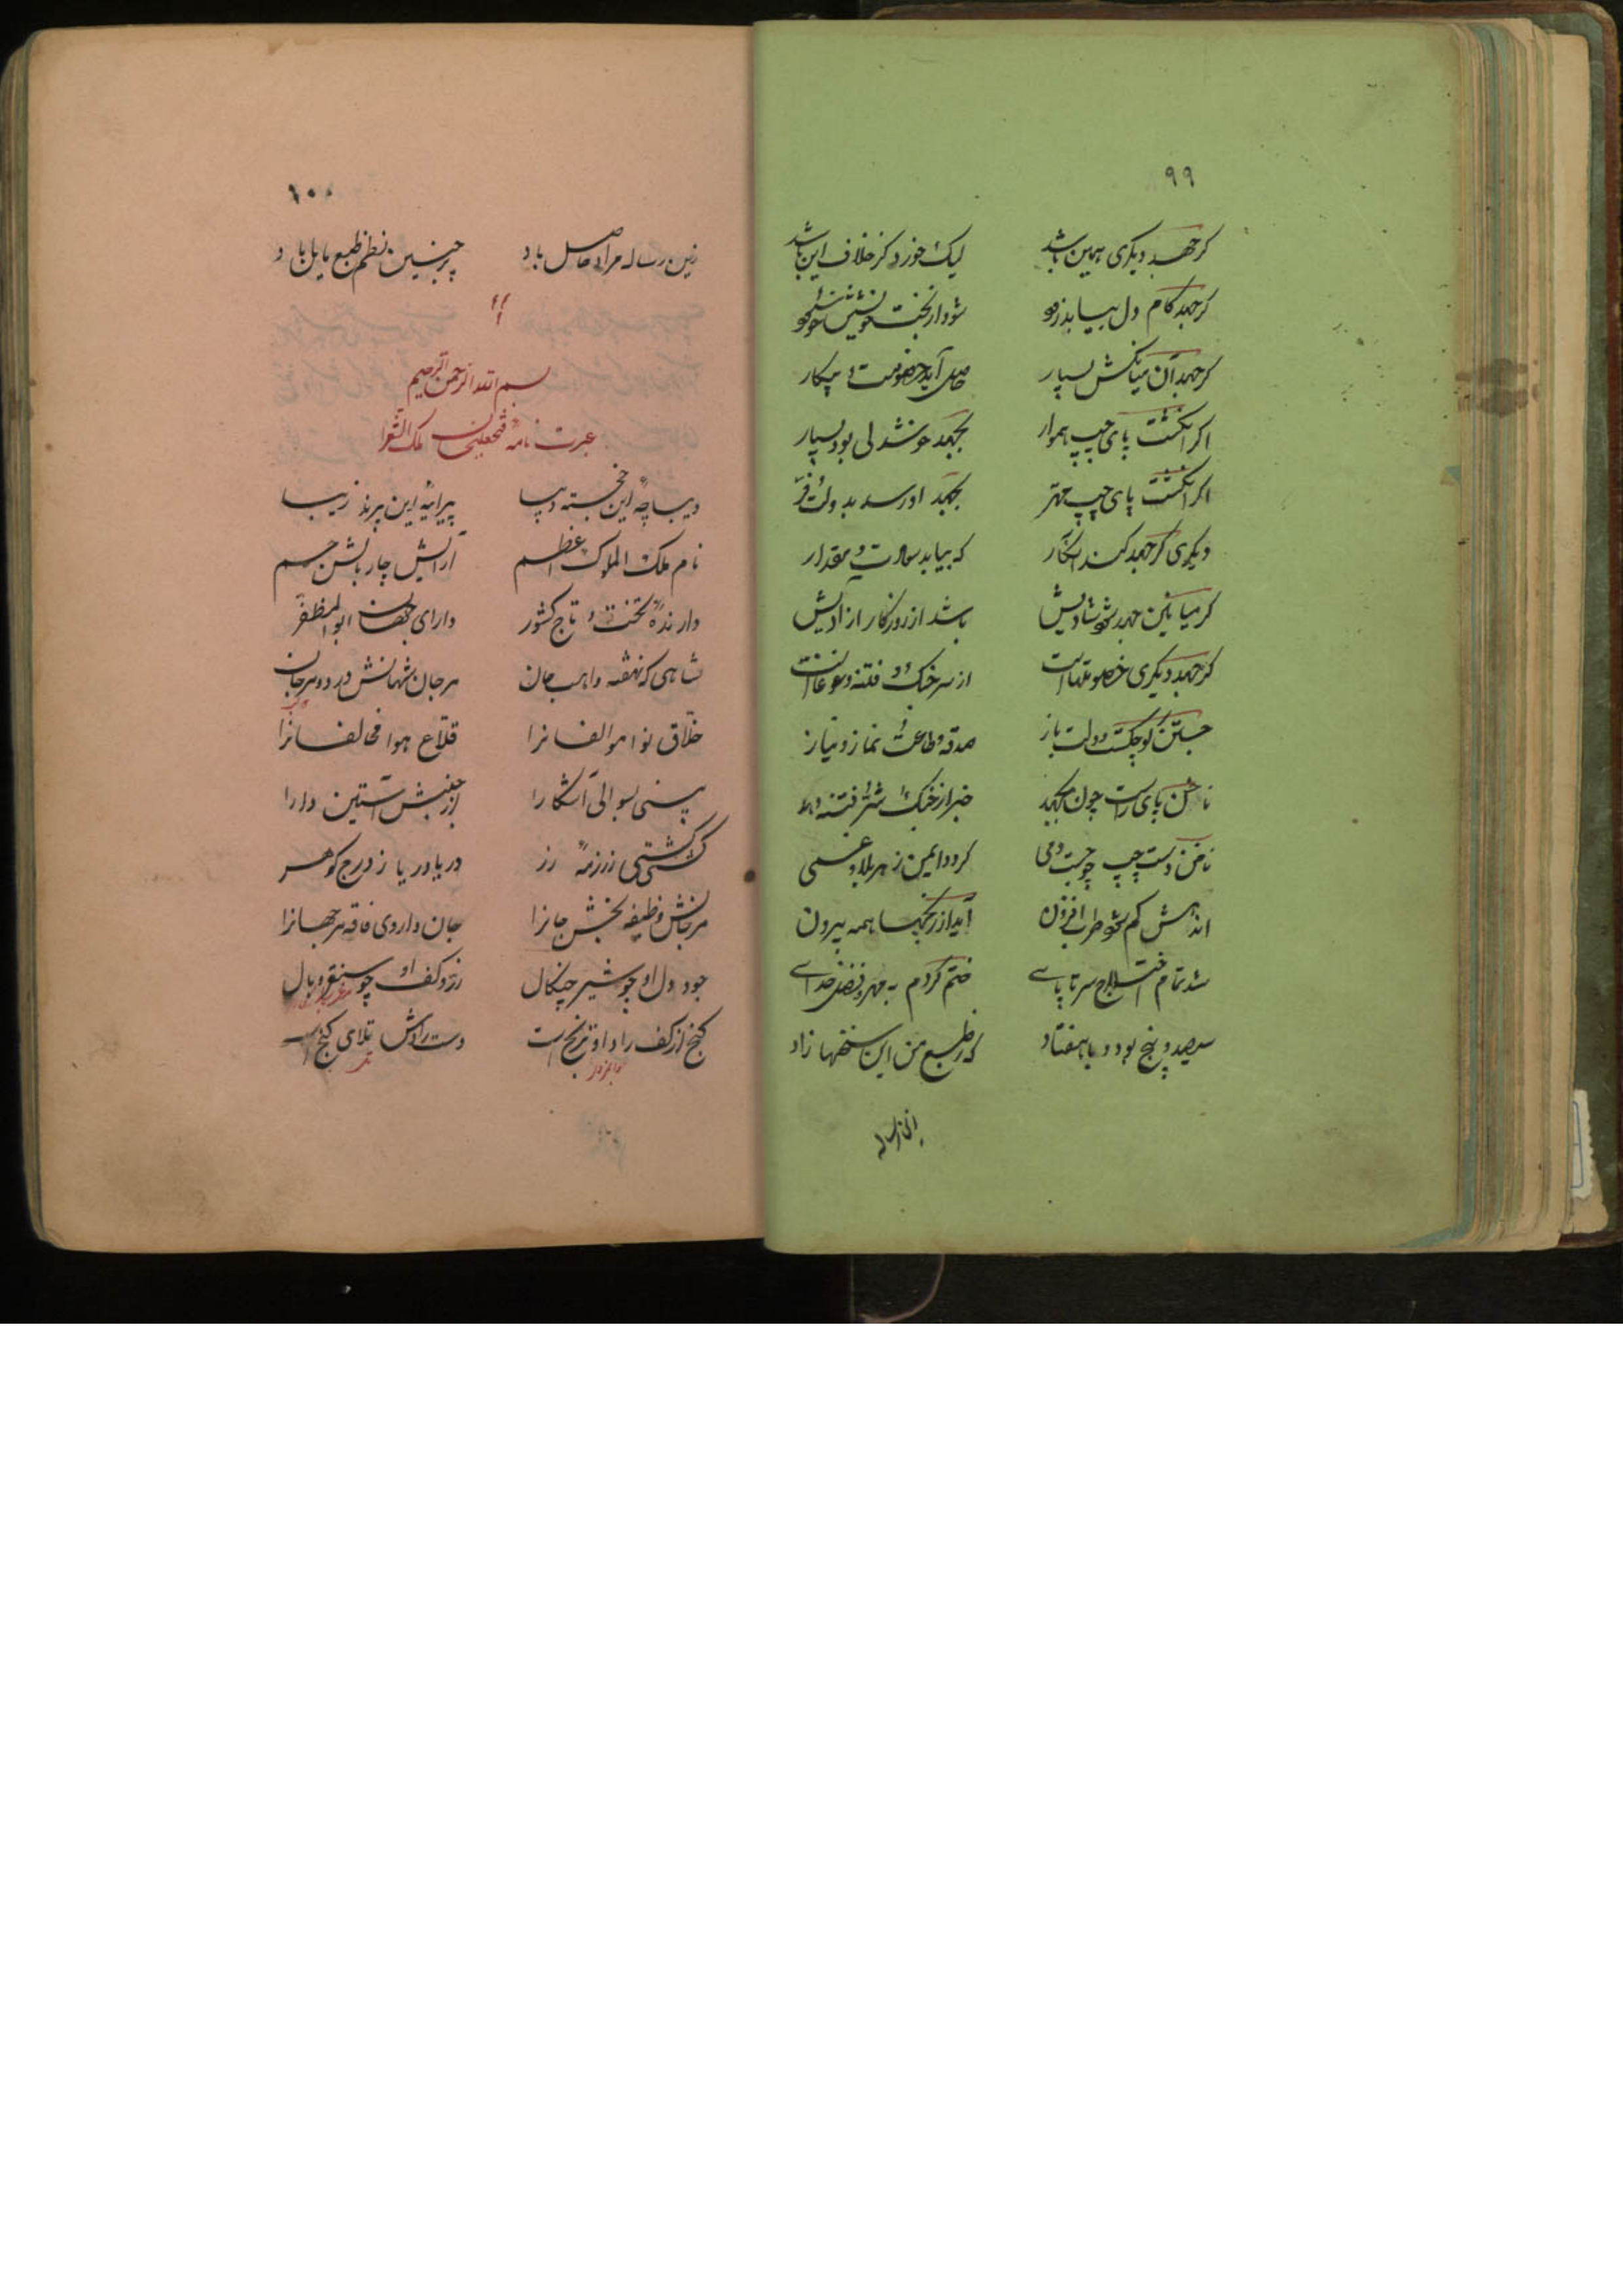 ۹۹
گر جهد دیگری همین باشد لیک خورد گر خلاف این باشد
گر جهد کام دل بیابد زو شود از بخت خویشتن خوشخو
گر جهد آن میانکش بسیار حاصل آید خصومت و پیکار
اگر انگشت پای چپ هموار بجهد خوشدلی بود بسیار
اگر انگشت پای چپ مهتر بجهد او رسد بدولت و فر
دیگری گر جهد کند انکار که بیابد مقدار
گر میانین جهد شادیش باشد از روزگار ازادیش
گر جهد دیگری خصومتهاست از سر جنگ و فتنه و غوغاست
جستن کوچکست دولت باز صدقه و طاعت و نماز و نیاز
ناخن پای راست چون بجهد خبر از جنگ و شر و فتنه دهد
ناخن دست چپ چو جست دمی گردد ایمن ز هر بلا و غمی
اندهش کم نشاط افزون آید از رنجها همه بیرون
شد تمام اختلاج سر تا پای ختم کردم به مهر و فضل خدای
سیصد و پنج بود و با هفتاد که ز طبع من این سخنها زاد
این رساله
۱۰۰
زین رساله مراد حاصل باد بر چنین نظم طبع مایل باد
بسم الله الرحمن الرحیم
عبرت نامه فتحعلیخان ملک الشعرا
دیباچه این خجسته دیبا پیرایه این پرند زیبا
نام ملک الملوک اعظم آرایش چار بالش جم
دارنده تخت و تاج کشور دارای جهان ابوالمظفر
شاهی که نهفته واهب جان مرجان شهانش در دو مرجان
خلاق نوا موالفانرا قلاع هوا مخالفانرا
بینی بسوالی آشکارا از جنبش آستین دارا
کشتی کشتی ز رزمه زر دریا دریا ز درج گوهر
مرجانش وظیفه بخش جانرا جان داروی فاقه مر جهانرا
جود و دل او چو شیر و چنگال زر و کف او چو سنقر و بال
گنج از کف راد او برنج است دست رادش بلای گنج است